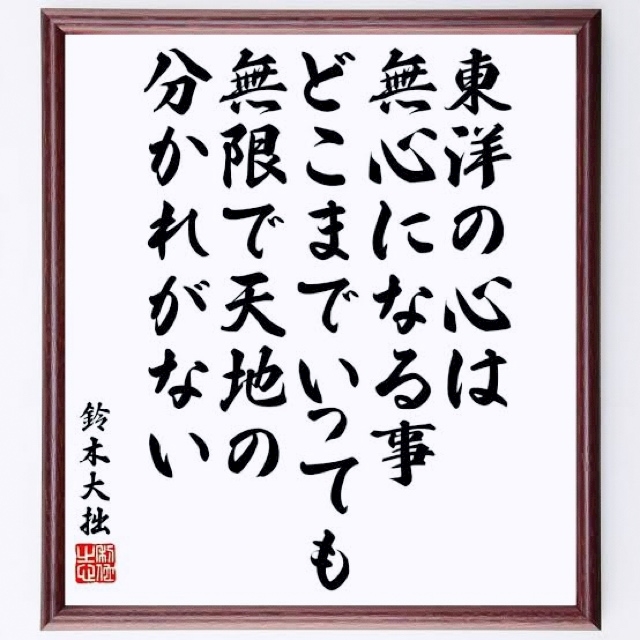 東洋の心は
無心になる事
どこまでいっても
無限で天地の
分かれがない
鈴木大拙